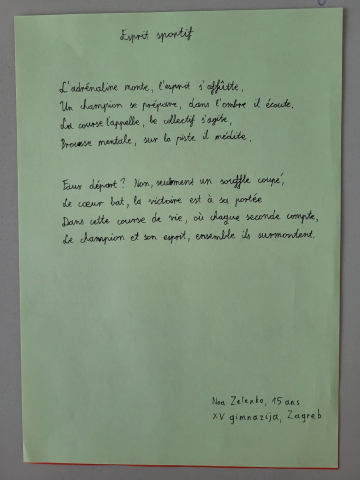 Esprit sportif
L'adrénaline monte, l'esprit s'affûtte,
Un champion se prépare, dans l'ombre il écoute.
La course l'appelle, le collectif s'agite,
Prouesse mentale, sur la piste il médite.
Faux départ? Non, seulement un souffle coupé,
Le cœur bat, la victoire est à sa portée
Dans cette course de vie, où chaque seconde compte,
Le champion et son esprit, ensemble ils surmontent.
Noa Zelenko, 15 ans
XV gimnazija, Zagreb